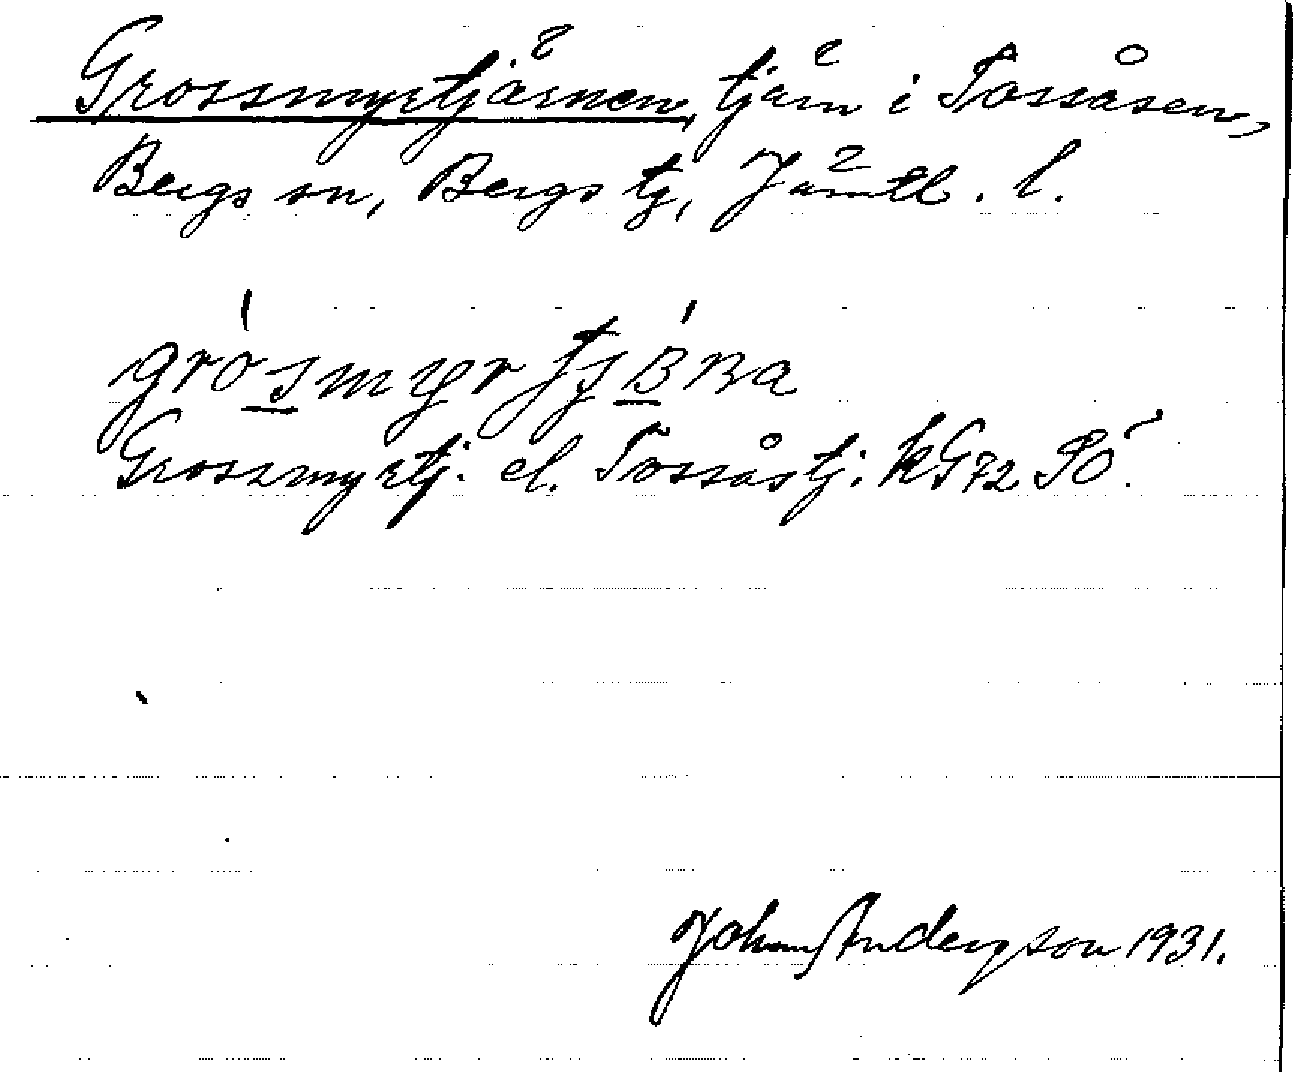 Grossmyrtjärnen, tjärn i Tossåsen,
Bergs sn, Bergs tg, Jämtl. l.
Grossmyrtj. el. Tossåstj. kG72 SÖ.
Johan Andersson 1931.